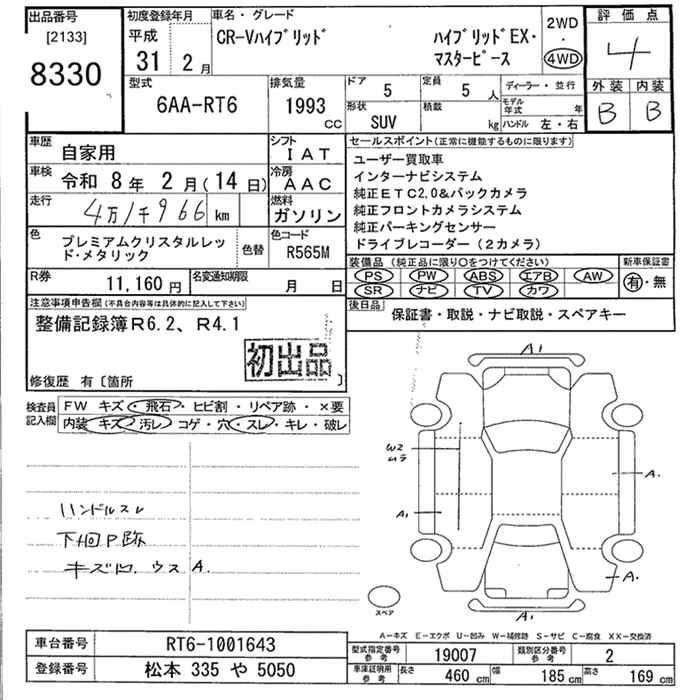 出品番号
[2133]
8330
初度登録年月
平成
31 2月
車名・グレード
CR-Vハイブリッド
ハイブリッドEX・
マスターピース
2WD
4WD
評価点
4
型式
6AA-RT6
排気量
1993
CC
ドア
5
定員
5人
ディーラー・並行
形状
SUV
積数
kg
モデル年式 年
ハンドル 左・右
外装 内装
B B
車歴
自家用
シフト
IAT
車検
令和 8年 2月(14日)
冷房
AAC
走行
4万1千966 km
燃料
ガソリン
色
プレミアムクリスタルレッド・メタリック
色替
色コード
R565M
R券
11,160円
名変通知期限
月 日
セールスポイント(正常に機能するものに限ります)
ユーザー買取車
インターナビシステム
純正ETC2.0&バックカメラ
純正フロントカメラシステム
純正パーキングセンサー
ドライブレコーダー(2カメラ)
装備品(純正品に限り○をつけてください)
新車保証書
PS PW ABS エアB AW
SR ナビ TV カワ
有・無
後日品
保証書・取説・ナビ取説・スペアキー
注意事項申告欄(不具合内容等は具体的に記入して下さい)
整備記録簿R6.2、R4.1
初出品
修復歴 有〔箇所 〕
検査員
記入欄
FW キズ・飛石・ヒビ割・リペア跡・×要
内装 キズ・汚レ・コゲ・穴・スレ・キレ・破レ
ハンドルスレ
下回P跡
キズ凹 ウス A.
A1
W2
ムラ
A1
A.
A.
A1
スペア
A-キズ E-エクボ U-凹み W-補修跡 S-サビ C-腐食 XX-交換済
車台番号
RT6-1001643
登録番号
松本 335 や 5050
型式指定番号
参考
19007
類別区分番号
参考
2
車庫証明用
参考
長さ 460 cm
幅 185 cm
高さ 169 cm